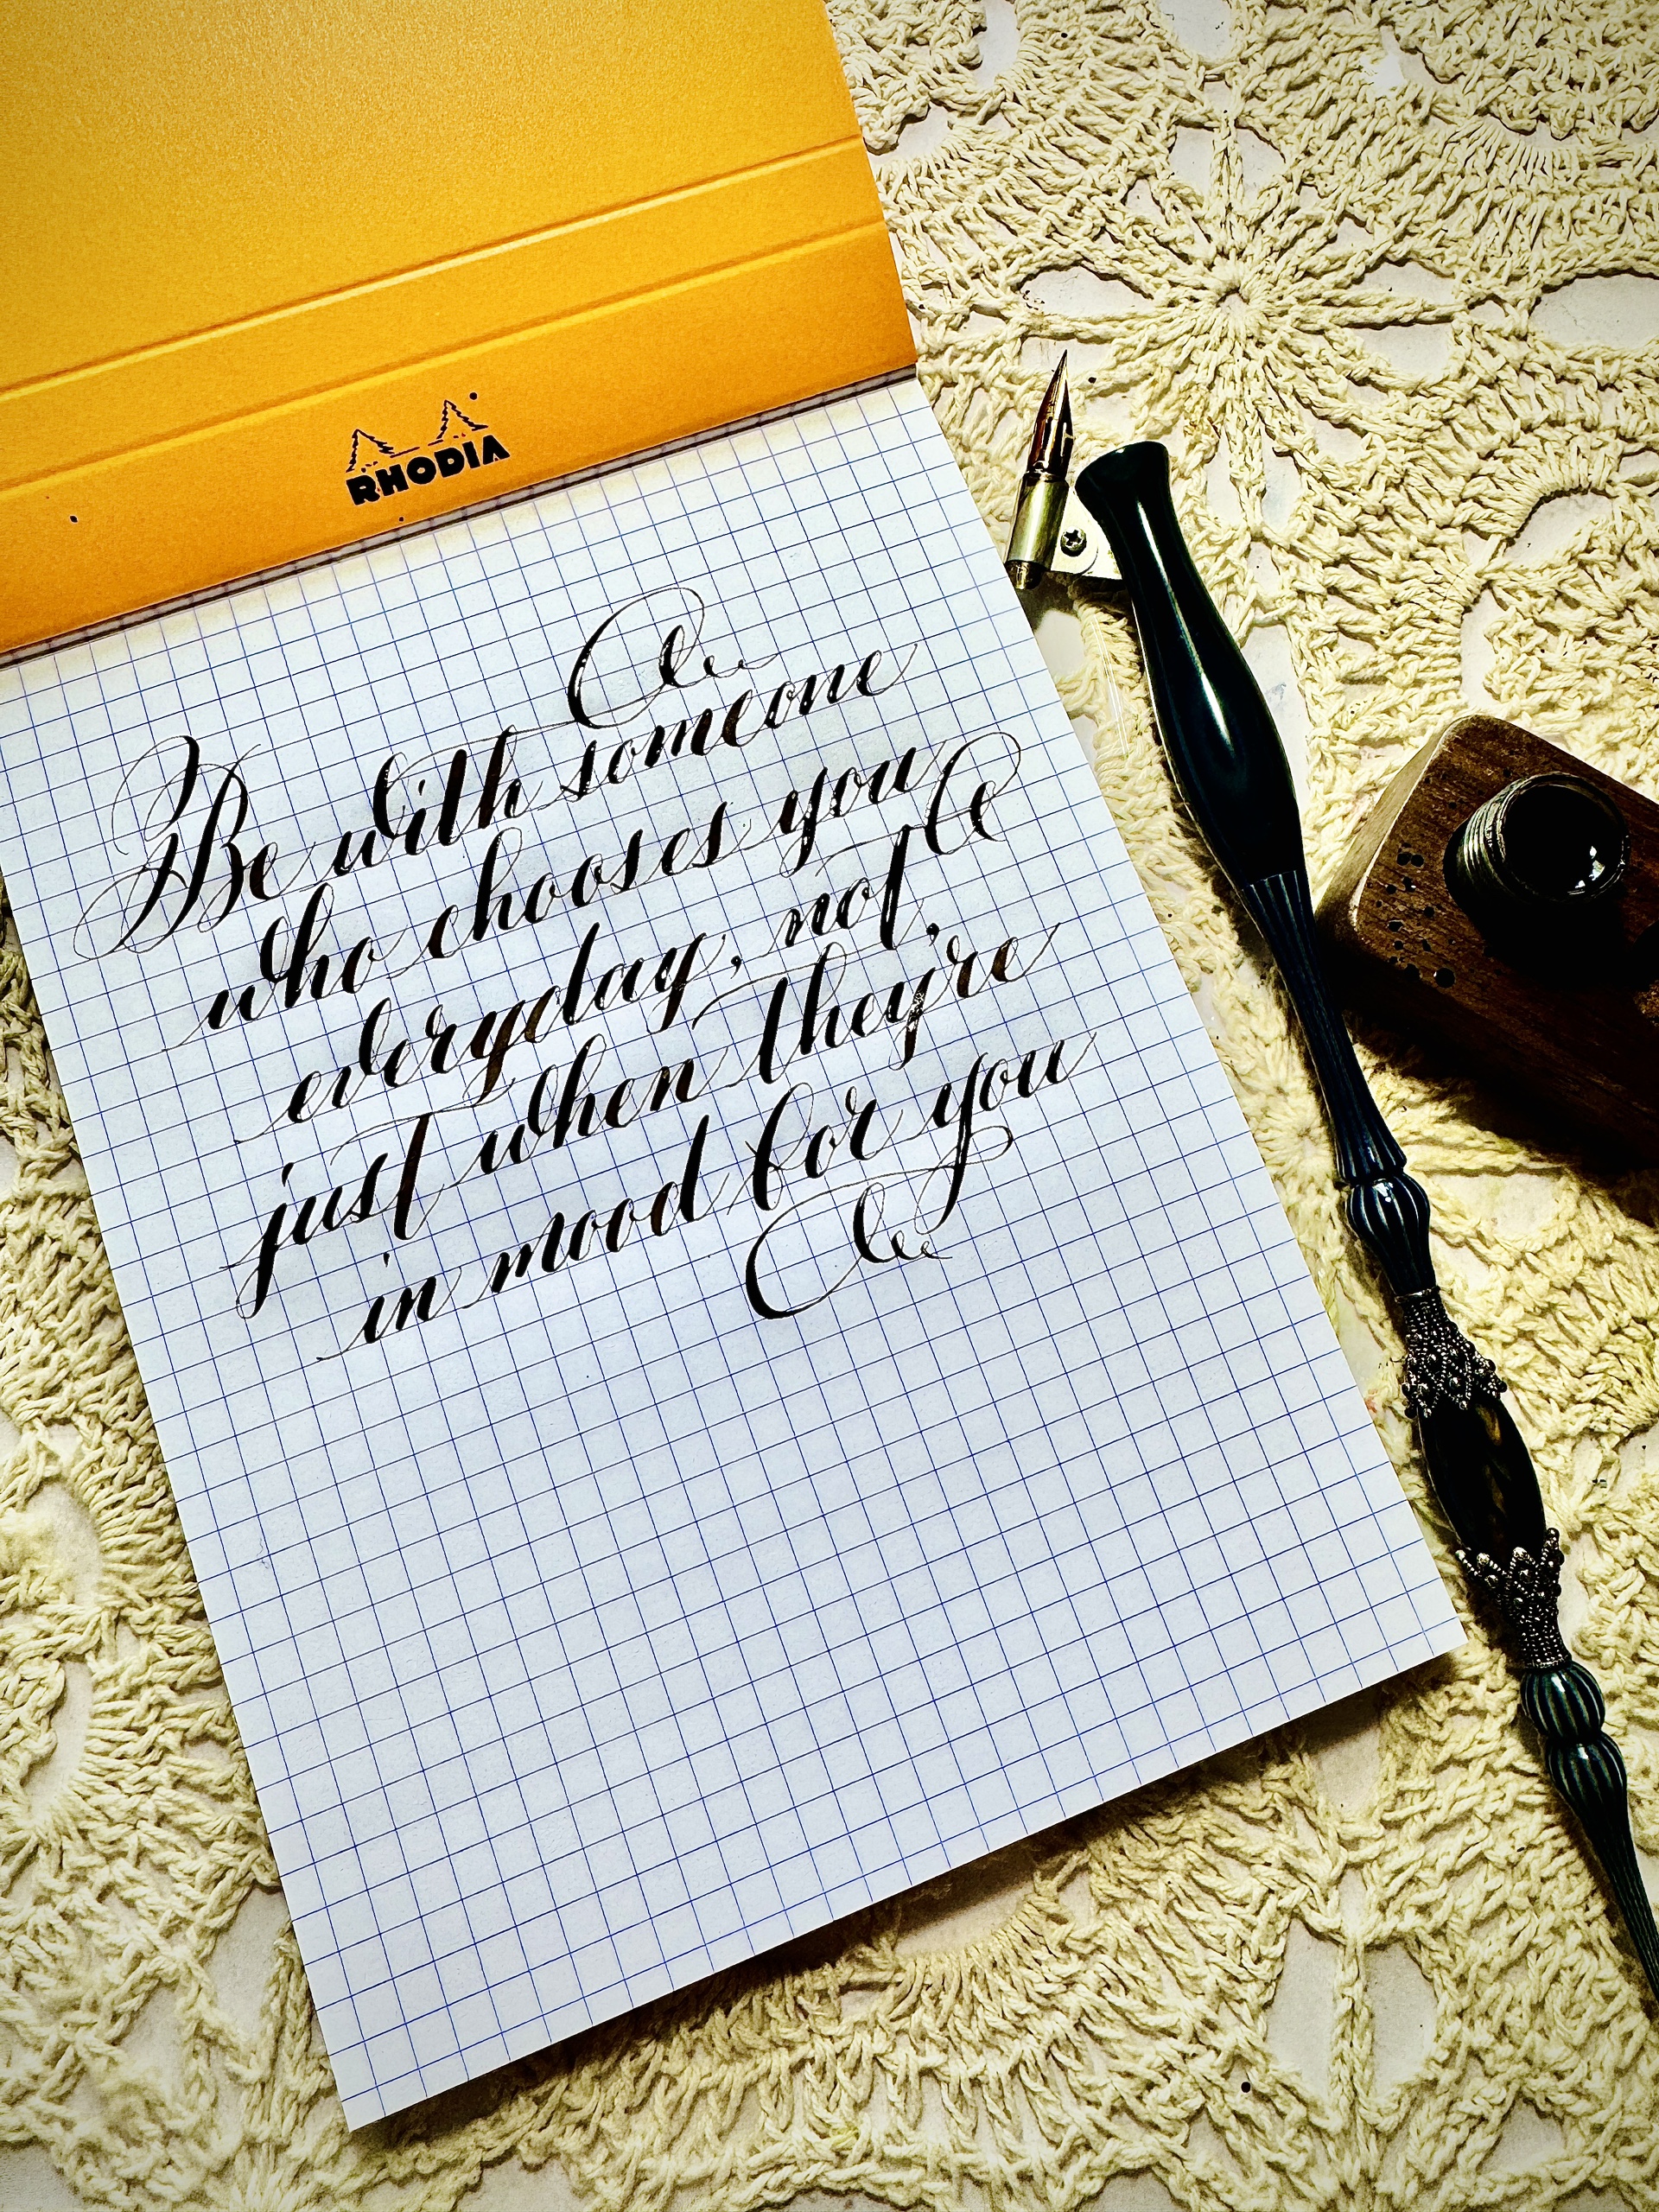 RHODIA
Be with someone
who chooses you
everyday, not,
just when they're
in mood for you